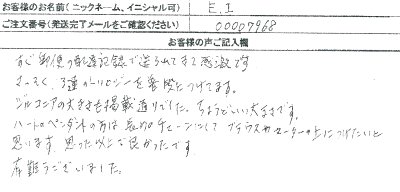 お客様のお名前(ニックネーム、イニシャル可) E.I
ご注文番号(発送完了メールをご確認ください) 00007968
お客様の声ご記入欄
すぐ郵便の配達記録で送られてきて感激です
さっそく、3連のトリロジーを普段につけてます。
ジルコニアの大きさも掲載通りでした。ちょうどいい大きさです。
ハートのペンダントの方は長めのチェーンにして ブラウスやセーターの上につけたいと
思います 思った以上で良かったです
有難うございました。